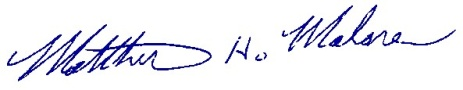 Matthew H. Malone